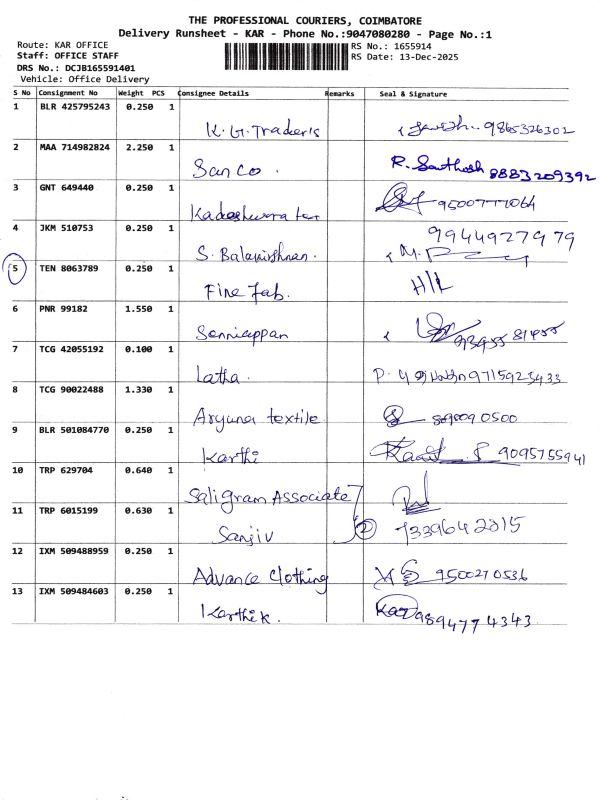 THE PROFESSIONAL COURIERS, COIMBATORE
Delivery Runsheet - KAR - Phone No.:9047080280 - Page No.:1
Route: KAR OFFICE RS No.: 1655914
Staff: OFFICE STAFF RS Date: 13-Dec-2025
DRS No.: DCJB165591401
Vehicle: Office Delivery
S No Consignment No Weight PCS Consignee Details Remarks Seal & Signature
1 BLR 425795243 0.250 1
K. G. Traders 9865326302
2 MAA 714982824 2.250 1
San Co. R. Santhosh 8883209392
3 GNT 649440 0.250 1
9500777064
4 JKM 510753 0.250 1 9944927979
S. Balakrishnan.
5 TEN 8063789 0.250 1
Fine Fab. H/L
6 PNR 99182 1.550 1
Senniappan
7 TCG 42055192 0.100 1
Latha. 9715923433
8 TCG 90022488 1.330 1
Arjuna textile
9 BLR 501084770 0.250 1
Karthi 9095755941
10 TRP 629704 0.640 1
Saligram Associate
11 TRP 6015199 0.630 1
Sanjiv 2 7339642815
12 IXM 509488959 0.250 1
Advance Clothing 9500270536
13 IXM 509484603 0.250 1
Karthik. 9894774343